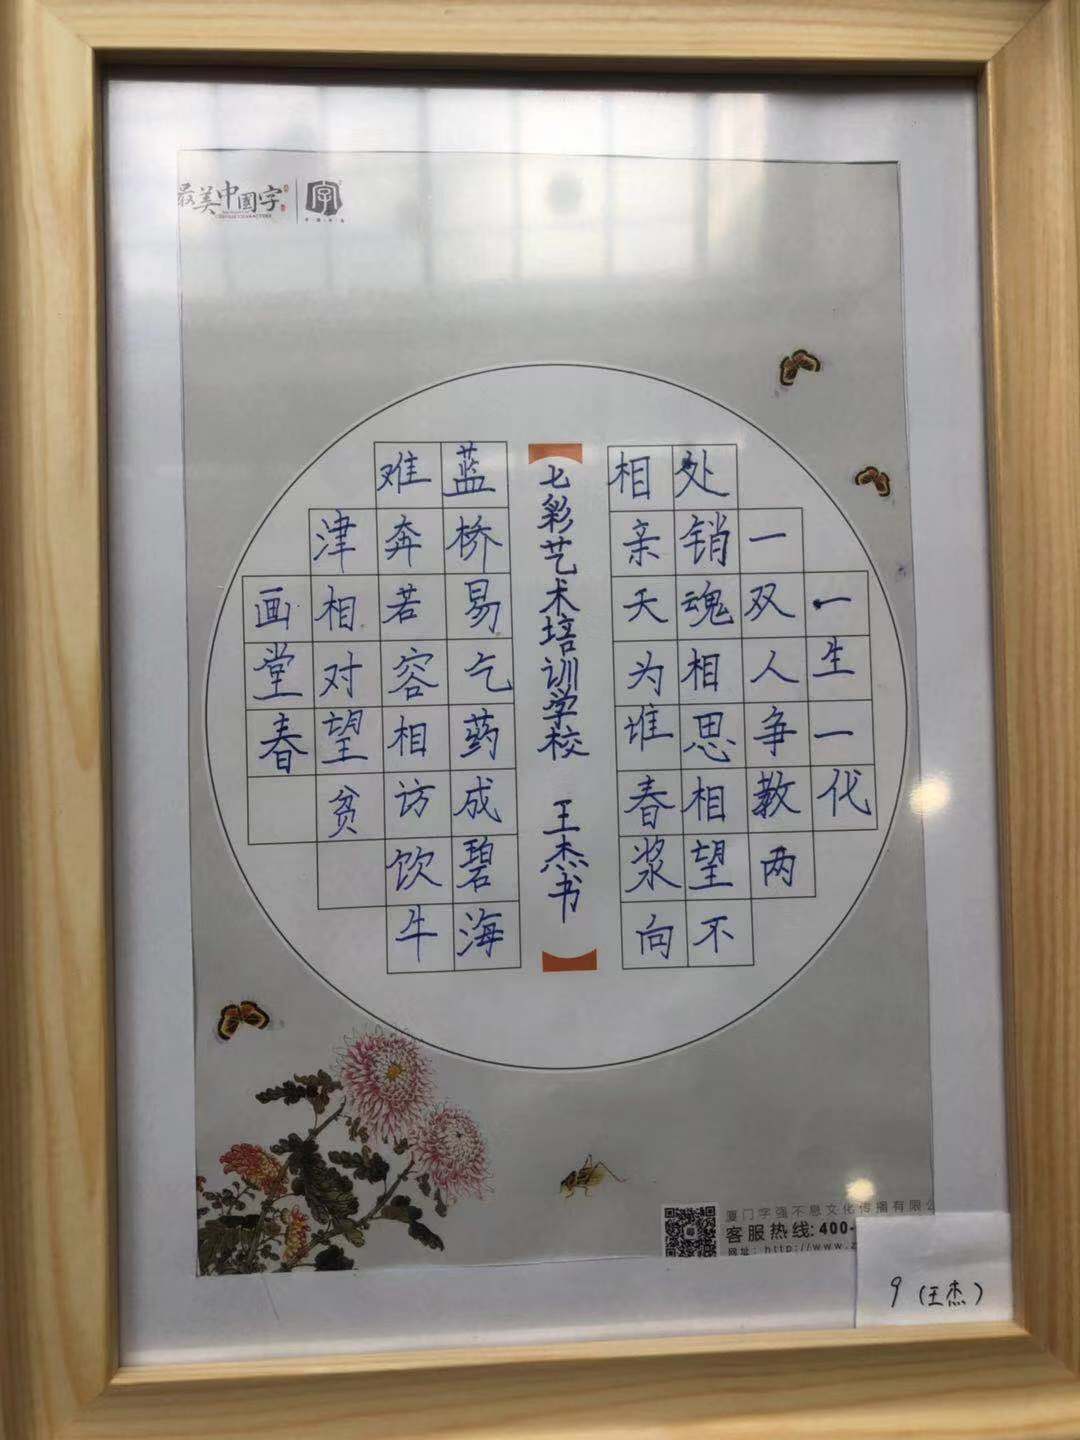 最美中国字
字
一生一代
一双人争教两
处销魂相思相望不
相亲天为谁春浆向
七彩艺术培训学校 王杰书
蓝桥易乞药成碧海
难奔若容相访饮牛
津相对望贫
画堂春
厦门字强不息文化传播有限公
客服热线:400-
网址: http://www.z
9(王杰)